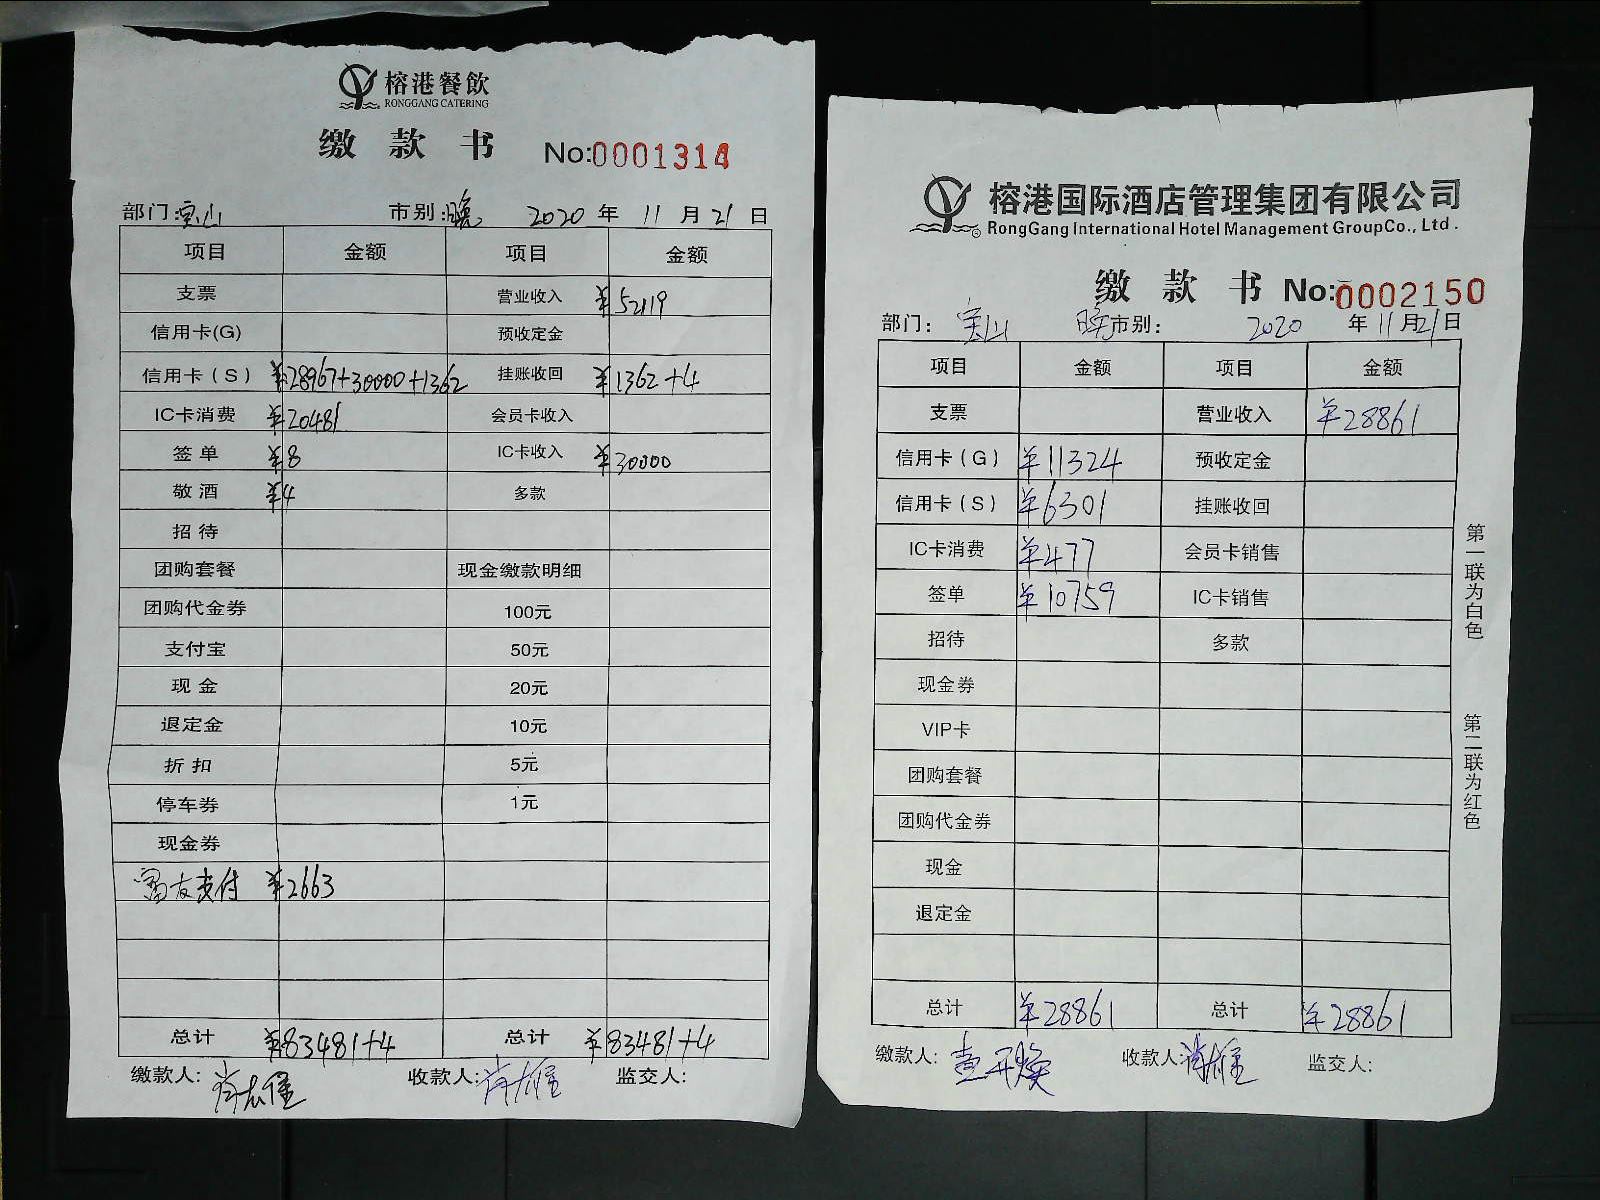 榕港餐飲
RONGGANG CATERING
缴 款 书 No:0001314
部门:宝山 市别:晚 2020 年 11 月 21 日
项目 金额 项目 金额
支票 营业收入 ¥52119
信用卡(G) 预收定金
信用卡(S) ¥28967+30000+1362 挂账收回 ¥1362+4
IC卡消费 ¥20481 会员卡收入
签单 ¥8 IC卡收入 ¥30000
敬酒 ¥4 多款
招待
团购套餐 现金缴款明细
团购代金券 100元
支付宝 50元
现金 20元
退定金 10元
折扣 5元
停车券 1元
现金券
富友支付 ¥2663
总计 ¥83481+4 总计 ¥83481+4
缴款人: 收款人: 监交人:
榕港国际酒店管理集团有限公司
RongGang International Hotel Management GroupCo., Ltd.
缴 款 书 No:0002150
部门: 宝山 市别: 2020 年 11 月 21 日
项目 金额 项目 金额
支票 营业收入 ¥28861
信用卡(G) ¥11324 预收定金
信用卡(S) ¥6301 挂账收回
IC卡消费 ¥477 会员卡销售
签单 ¥10759 IC卡销售
招待 多款
现金券
VIP卡
团购套餐
团购代金券
现金
退定金
总计 ¥28861 总计 ¥28861
缴款人: 收款人: 监交人:
第一联为白色
第二联为红色